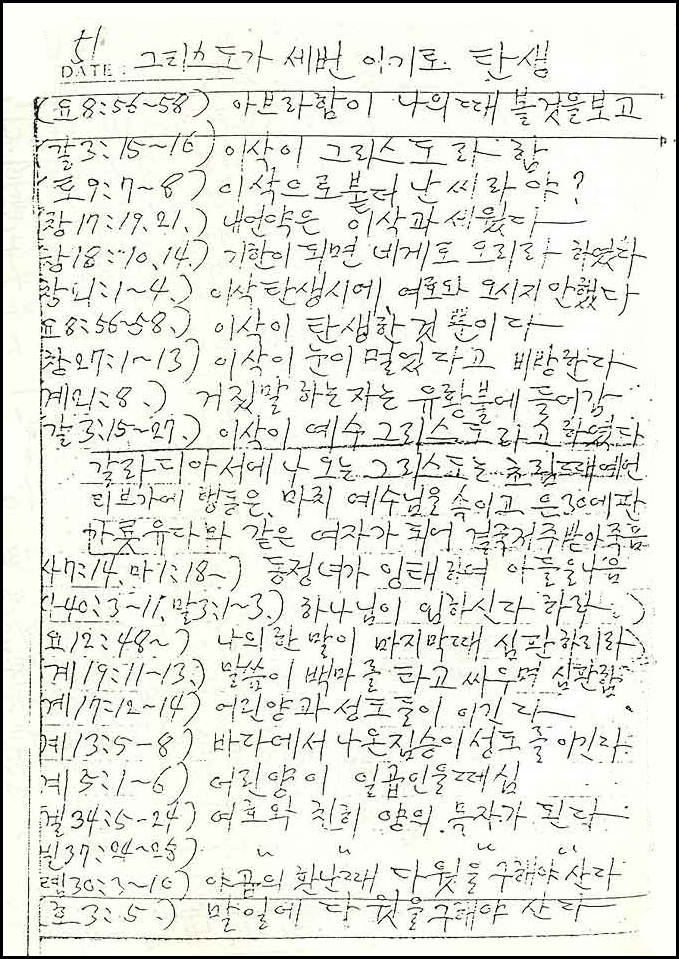 51
DATE 그리스도가 세번 이기로 탄생
(요8:56~58) 아브라함이 나의때 볼것을보고
(갈3:15~16) 이삭이 그리스도라 함
(로9:7~8) 이삭으로붙터 난 씨라야?
(창17:19.21.) 내언약은 이삭과 세웠다
창18:10.14.) 기한이 되면 네게로 오리라 하였다
창21:1~4.) 이삭탄생시에 여호와 오시지 안했다
요8:56~58.) 이삭이 탄생한것 뿐이다
창27:1~13) 이삭이 눈이 멀었다고 비방한다
계21:8.) 거짓말 하는자는 유황불에 들어감
(갈3:15~27.) 이삭이 예수그리스도라고 하였다
갈라디아서에 나오는 그리스도는 예언
리브가에 행동은 마치 예수님을 속이고 은30에판
가룟유다와 같은 여자가 되어 결국저주받아죽음
사7:14. 마1:18~) 동정녀가 잉태하여 아들을나음
사40:3~11. 말3:1~3.) 하나님이 임하신다 하라
요12:48~) 나의한 말이 마지막때 심판하리라
(계19:11~13.) 말씀이 백마를 타고 싸우며 심판함
(계17:12~14) 어린양과성도들이 이긴다
계13:5~8) 바다에서나온짐승이성도를이긴다
계5:1~6) 어린양이 일곱인을떼심
겔34:5~24) 여호와 친히 양의 목자가 된다
겔37:24~25) 〃 〃 〃 〃
렘30:3~10) 야곱의 환난때 다윗을 구해야산다
(호3:5.) 말일에 다윗을구해야 산다